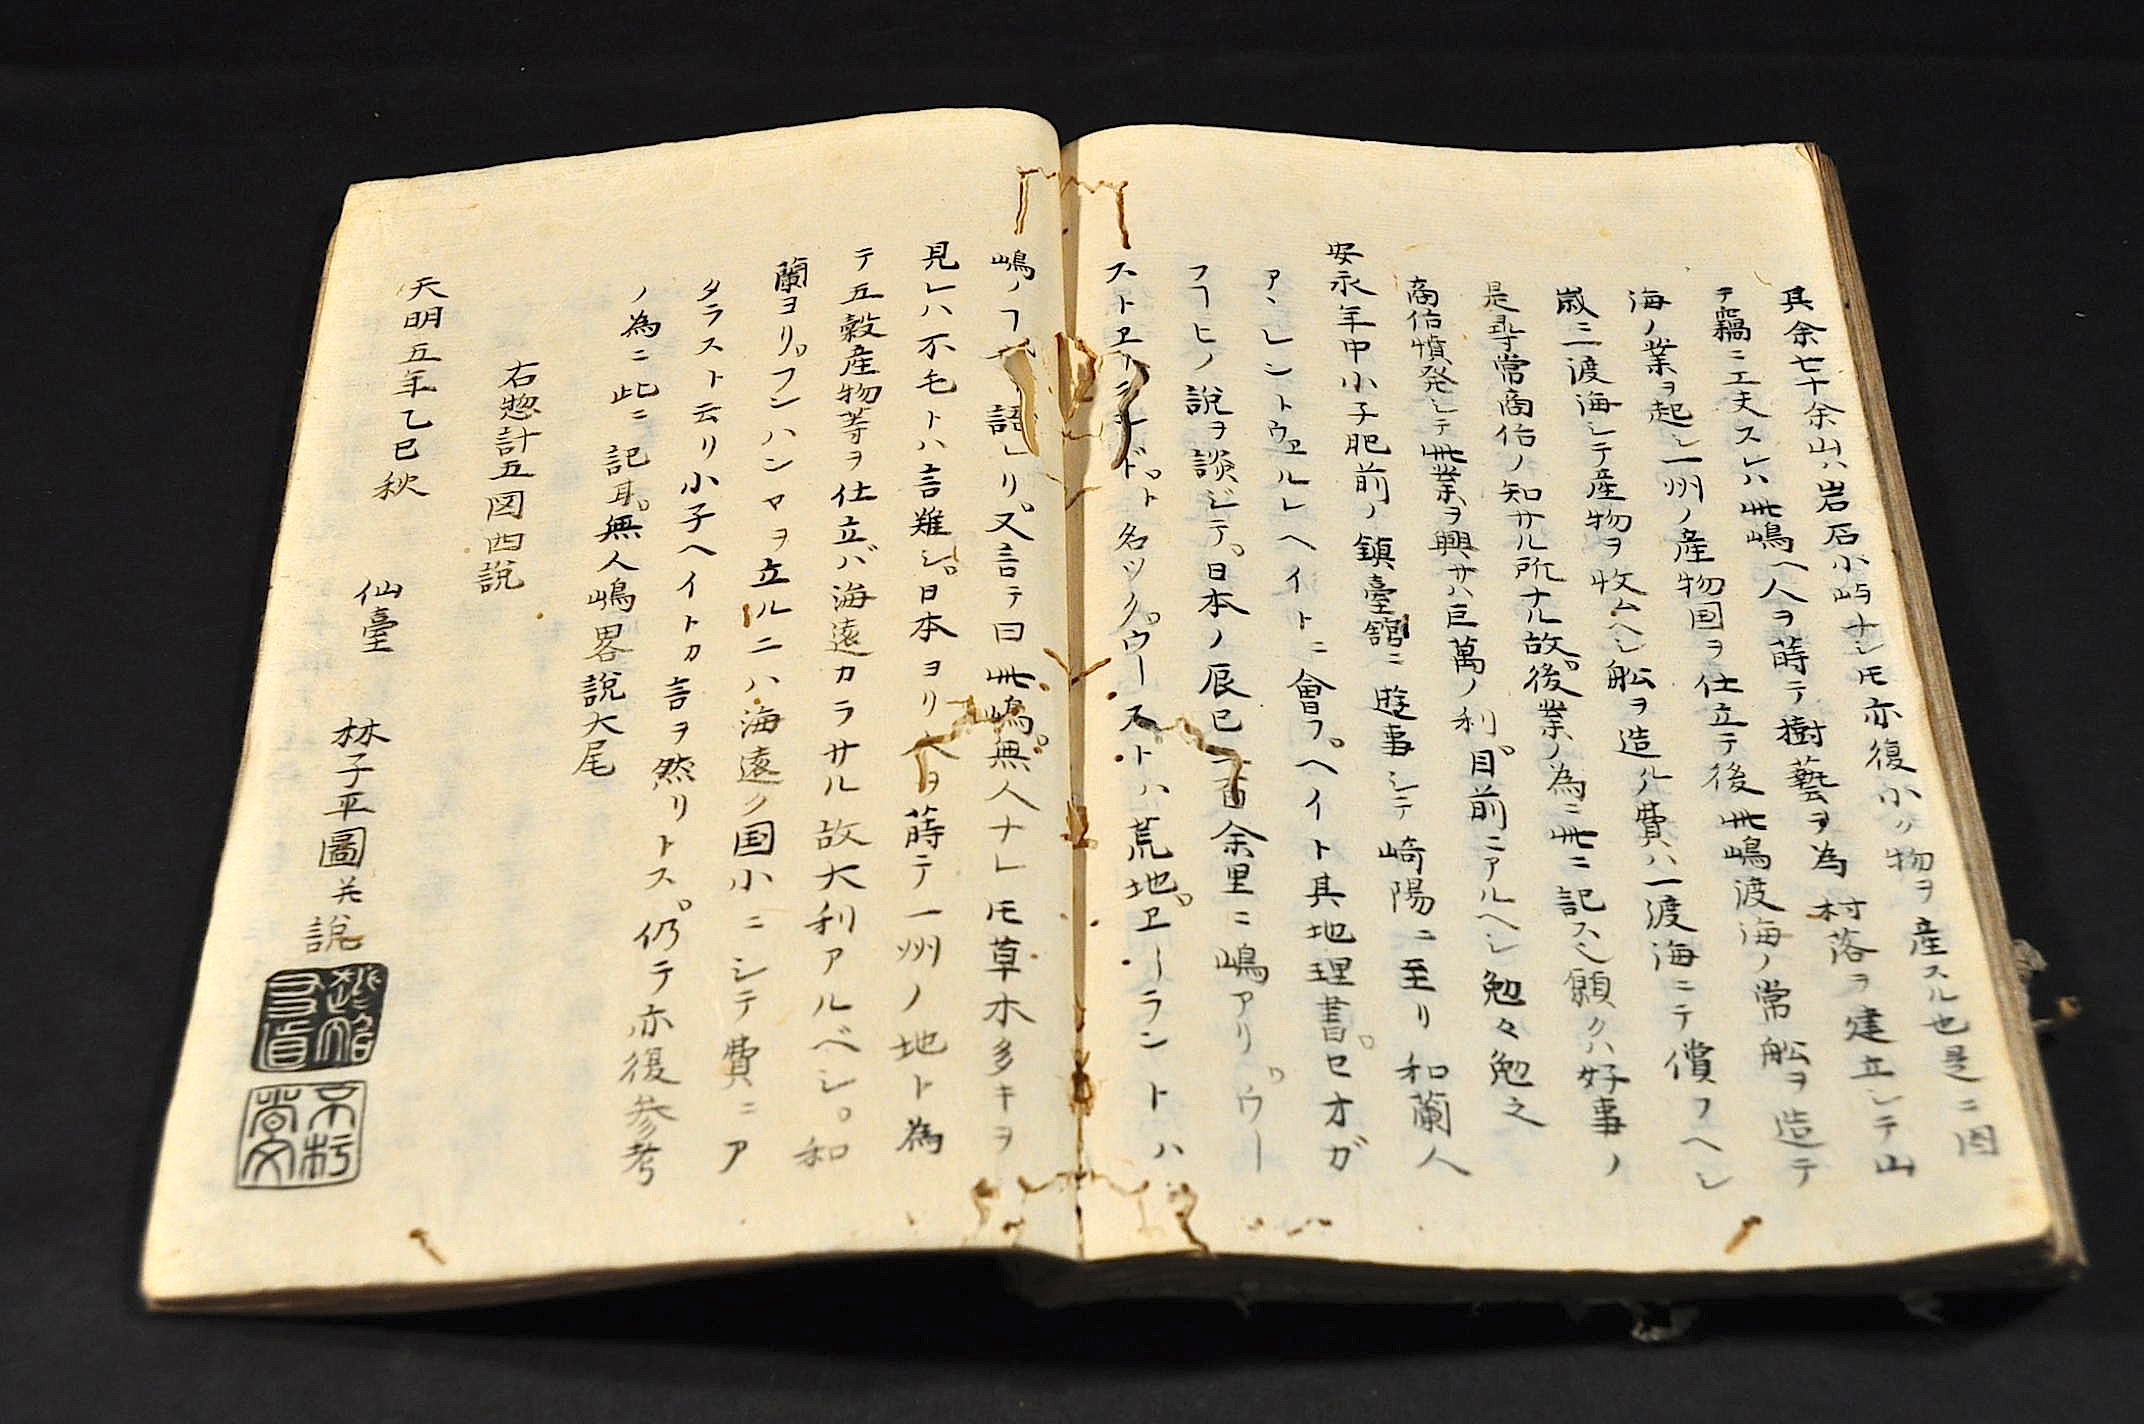 其余七十余山ハ岩石小嶼ナレ𪜈亦復小ク物ヲ産スル也是ニ因
テ竊ニ工夫スレハ此嶋ヘ人ヲ蒔テ樹藝ヲ為村落ヲ建立シテ山
海ノ業ヲ起シ一州ノ産物国ヲ仕立テ後此嶋渡海ノ常舩ヲ造テ
歳三渡海シテ産物ヲ牧ムヘシ舩ヲ造ルノ費ハ一渡海ニテ償フヘシ
是尋常商估ノ知サル所ナル故後業ノ為ニ此ニ記ス願クハ好事ノ
商估憤発シテ此業ヲ興サハ巨萬ノ利目前ニアルヘシ勉々勉之
安永年中小子肥前ノ鎮臺舘ニ遊事シテ崎陽ニ至リ和蘭人
アヽレントウヱルレヘイトニ會フヘイト其地理書セオガ
ラフヒノ説ヲ談シテ日本ノ辰巳二百余里ニ嶋アリウー
ストヱイランドト名ツクウーストハ荒地ヱーラントハ
嶋ノ語レリ又言テ曰此嶋無人ナレ𪜈草木多キヲ
見レハ不毛トハ言難シ日本ヨリ人ヲ蒔テ一州ノ地ト為
テ五穀産物等ヲ仕立バ海遠カラサル故大利アルベシ和
蘭ヨリフンハンマヲ立ルニハ海遠ク国小ニシテ費ニア
タラスト云リ小子ヘイトカ言ヲ然リトス仍テ亦復参考
ノ為ニ此ニ記耳無人嶋畧説大尾
右惣計五図四説
天明五年乙巳秋
仙臺 林子平圖并説